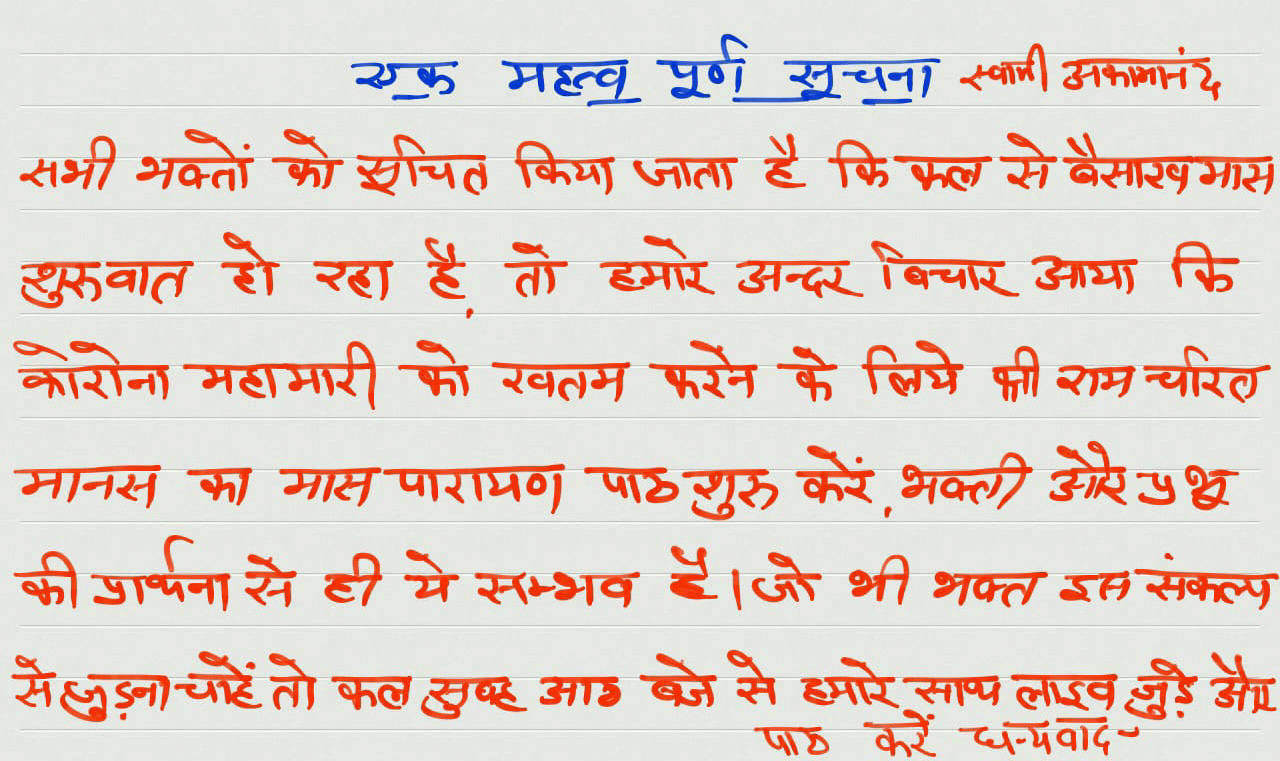 एक महत्व पूर्ण सूचना स्वामी अकामानंद
सभी भक्तों को सूचित किया जाता है कि कल से बैसाख मास
शुरुवात हो रहा है, तो हमारे अन्दर विचार आया कि
कोरोना महामारी को खतम करने के लिये श्री राम चरित
मानस का मास पारायण पाठ शुरु करें, भक्ती और प्रभु
की प्रार्थना से ही ये सम्भव है। जो भी भक्त इस संकल्प
से जुड़ना चाहें तो कल सुबह आठ बजे से हमारे साथ लाइव जुड़े और
पाठ करें धन्यवाद